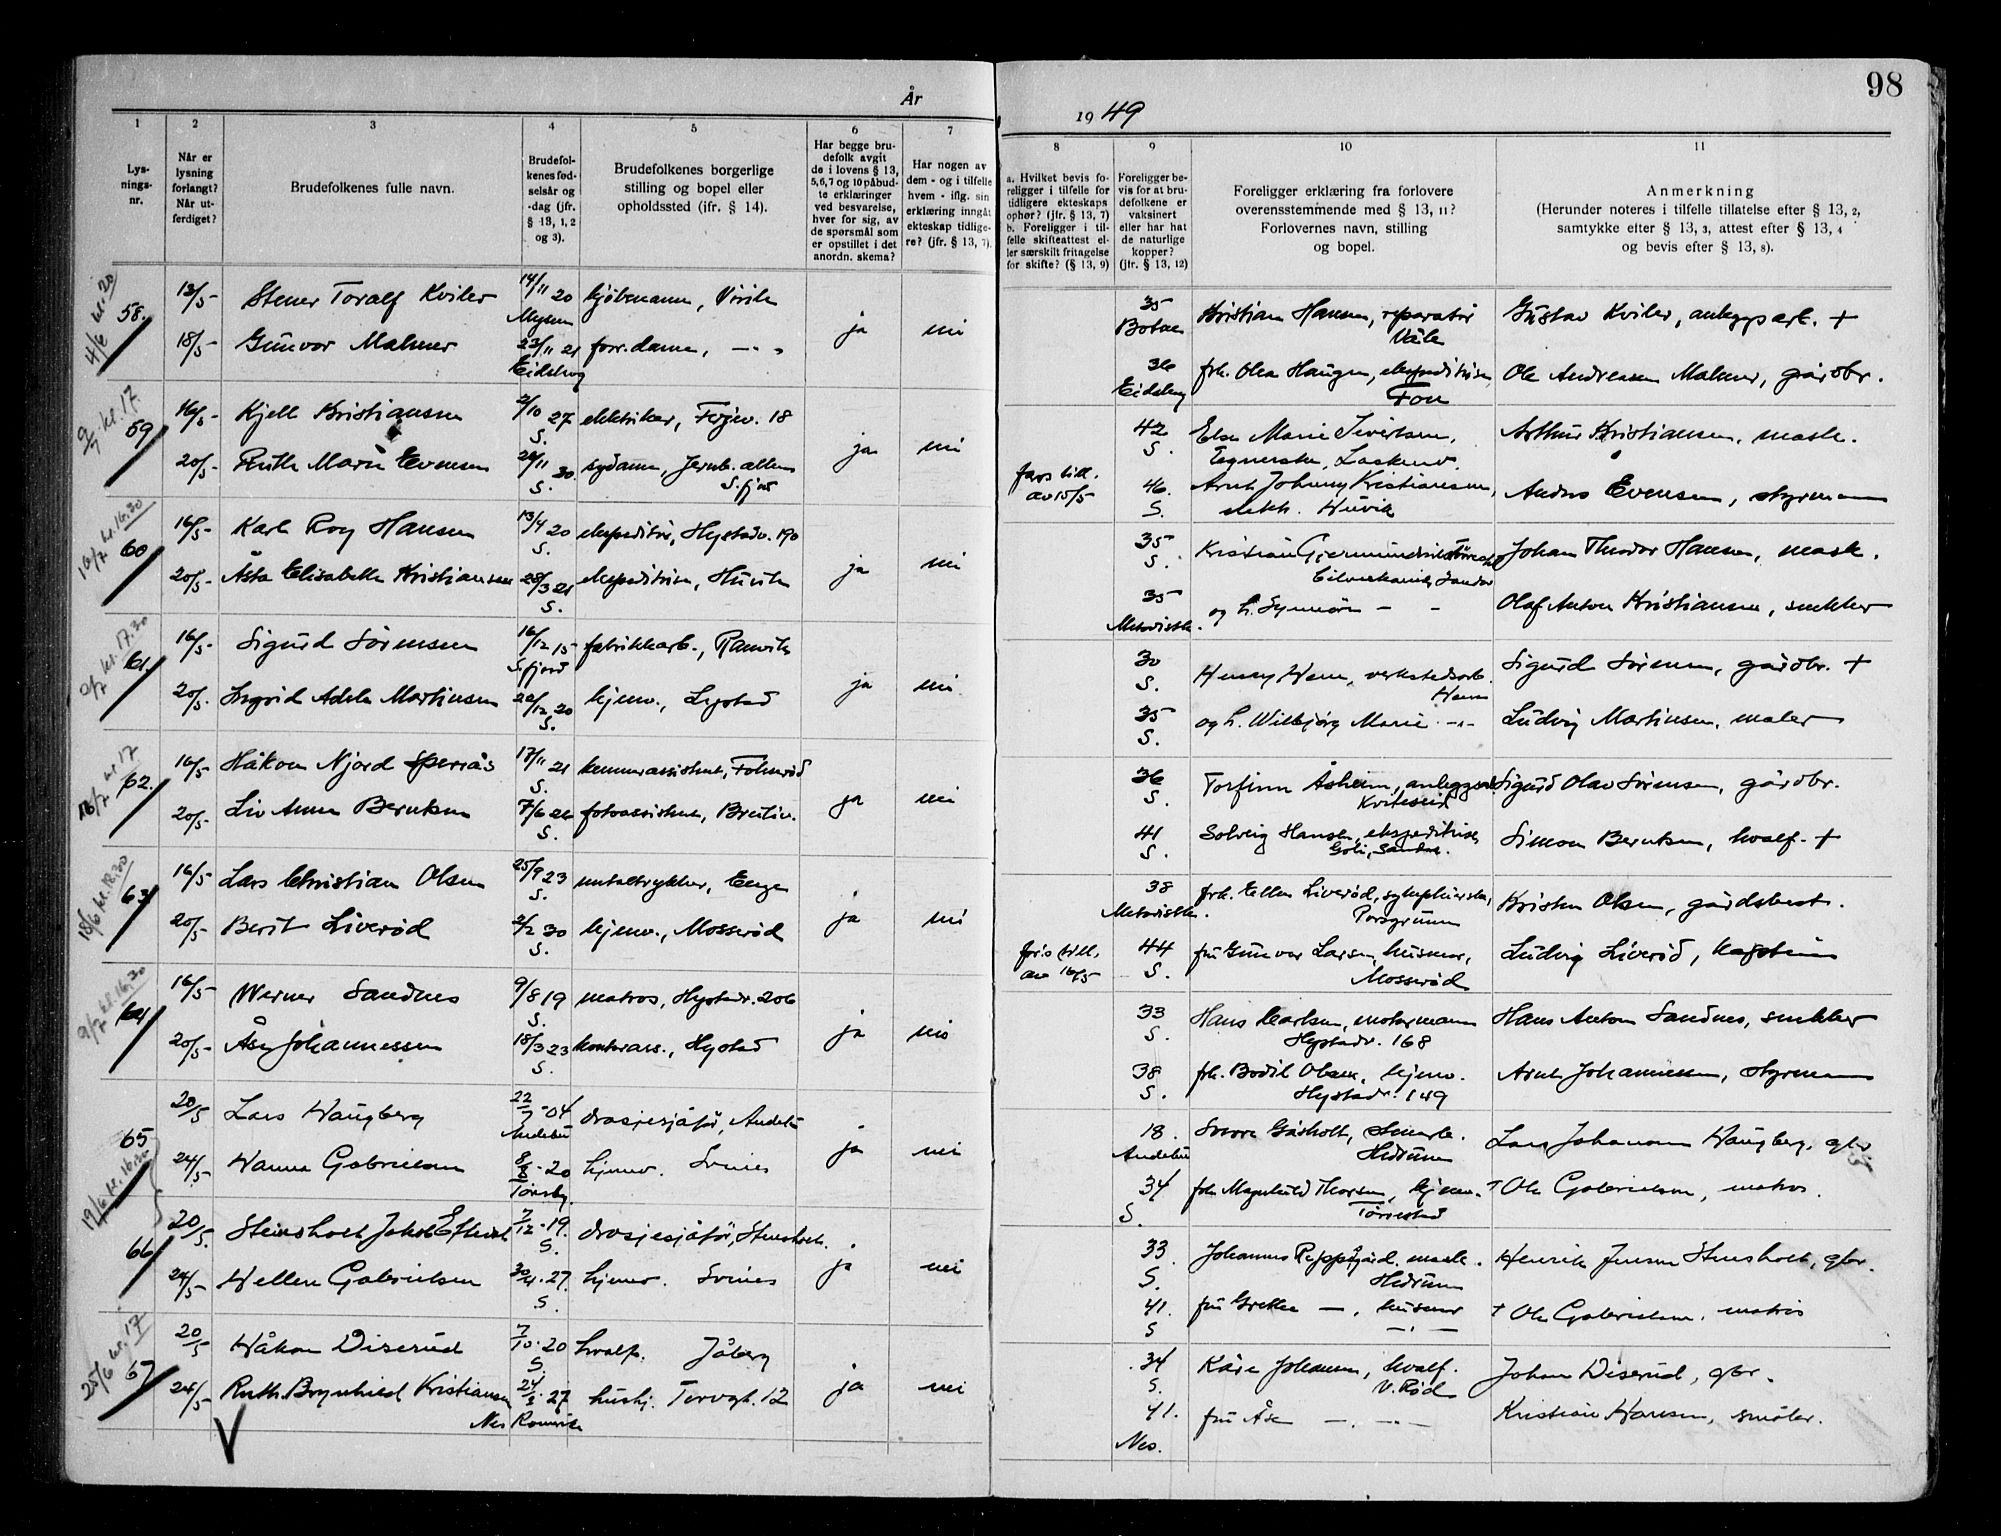 98
År
19 49
1
2
3
4
5
6
7
8
9
10
11
Lys-
nings-
nr.
Når er
lysning
forlangt?
Når ut-
ferdiget?
Brudefolkenes fulle navn.
Brudefol-
kenes fød-
selsår og
-dag (jfr.
§ 13, 1, 2
og 3).
Brudefolkenes borgerlige
stilling og bopel eller
opholdssted (jfr. § 14).
Har begge bru-
defolk avgit
de i lovens § 13,
5, 6, 7 og 10 påbud-
te erklæringer
ved besvarelse,
hver for sig, av
de spørsmål som
er opstillet i det
anordn. skema?
Har nogen av
dem - og i tilfelle
hvem - iflg. sin
erklæring inngåt
ekteskap tidlige-
re? (jfr. § 13, 7).
a. Hvilket bevis fo-
religger i tilfelle for
tidligere ekteskaps
ophør? (jfr. § 13, 7)
b. Foreligger i til-
felle skifteattest el-
ler særskilt fritagelse
for skifte? (§ 13, 9)
Foreligger be-
vis for at bru-
defolkene er
vaksinert
eller har hat
de naturlige
kopper?
(jfr. § 13, 12)
Foreligger erklæring fra forlovere
overensstemmende med § 13, 11?
Forlovernes navn, stilling
og bopel.
Anmerkning
(Herunder noteres i tilfelle tillatelse efter § 13, 2,
samtykke efter § 13, 3, attest efter § 13, 4
og bevis efter § 13, 8).
4/6 kl. 20
58. 13/5 Stener Toralf Kviler 14/11 20 kjøbmann, Virik ja nei 35 Kristian Hansen, reparatør Gustav Kviler, anleggsarb. +
Mysen Botne Våle
18/5 Gunvor Malmer 23/11 21 forr.dame, — " — 36 frk. Olea Haugen, ekspeditrise, Ole Andreassen Malmer, gårdbr.
Eidsberg Eidsberg Fon
9/7 kl. 17.
59 16/5 Kjell Kristiansen 2/10 27 elektriker, 18 ja nei 42 Else Marie Sivertsen, Arthur Kristiansen, mask.
S. S.
20/5 Ruth Marie Evensen 11 30 sydame, Jernb. alleen fars till. 46. Arnt Johnny Kristiansen, Anders Evensen, styrmann
S. S.fjord av 15/5 S. elekt. Huvik
16/7 kl. 16.30
60 16/5 Karl Roy Hansen 13/4 20 ekspeditør, Hystadv. 190 ja nei 35 Kristian Johan Theodor Hansen, mask.
S. S. Sandar
20/5 Åsta Elisabeth Kristiansen 28/3 21 ekspeditrise, Huvik 35 og h. Synnøve — — Olaf Anton Kristiansen, snekker
S. Metodistk.
2/7 kl. 17.30
61. 16/5 Sigurd Sørensen 16/12 15 fabrikkarb., Ranvik ja nei 30 Henry Hem, verkstedarb. Sigurd Sørensen, gårdbr. +
S.fjord S. Hem
20/5 Ingrid Adele Martinsen 12 20 hjemv., Hystad 35 og h. Wilbjørg Marie — " — Ludvig Martinsen, maler
S. S.
16/7 kl. 17
62. 16/5 Håkon Njord 17/11 21 kemnerassistent, Fokserød ja nei 36 Torfinn Åsheim, anleggsarb. Sigurd Olav Sørensen, gårdbr.
S. S. Kviteseid
20/5 Liv Anne Berntsen 7/6 26 fotoassistent, Breiliv. 41 Solveig Hansen, ekspeditrise, Simon Berntsen, hvalf. +
S. S. Goli, Sandar.
18/6 kl. 18.30
63 16/5 Lars Christian Olsen 25/9 23 metaltrykker, Enge ja nei 38 frk. Ellen Liverød, sykepleierske, Kristen Olsen, gårdsbest.
S. Metodistk. Porsgrunn
20/5 Berit Liverød 2/2 30 hjemv., Mosserød fars till. 44 fru Gunvor Larsen, husmor, Ludvig Liverød, kaptein
S. av 16/5 S. Mosserød
9/7 kl. 16.30
64 16/5 Werner Sandnes 9/8 19 matros, Hystadv. 206 ja nei 33 Hans Carlsen, motormann Hans Anton Sandnes, snekker
S. S. Hystadv. 168
20/5 Åse Johannessen 18/3 23 kontorass., Hystad 38 frk. Bodil Olsen, hjemv. Arnt Johannessen, styrmann
S. S. Hystadv. 149
19/6 kl. 16.30
65 20/5 Lars Haugberg 22/7 -04 drosjesjåfør, Andebu ja nei 18. Sverre Gåsholt, Lars Johannes Haugberg, gbr.
Andebu Andebu Hedrum
24/5 Hanna Gabrielsen 8/8 -20 hjemv. Svines 34 frk. Magnhild Thorsen, hjemv. † Ole Gabrielsen, matros.
Tønsbg. S. Tørrestad
66 20/5 Steinsholt, Jakob 7/12 -19. drosjesjåfør, Stensholt. ja nei 33 Johannes mask. Henrik Jensen Stensholt, gbr.
S. S. Hedrum
24/5 Hellen Gabrielsen 30/4 -27. hjemv. Svines 41. fru Grethe —, husmor † Ole Gabrielsen, matros
S. S — " —
25/6 kl. 17
67 20/5 Håkon Diserud 7/10 -20 hvalf. Jåberg ja nei 34 Kåre Johansen, hvalf. Johan Diserud, gbr.
S. S. V. Rød
24/5 Ruth Brynhild Kristiansen 24/3 -27 hushj. Torvgt. 12 41. fru Åse — " — Kristian Hansen, småbr.
Nes Romerike Nes.
V